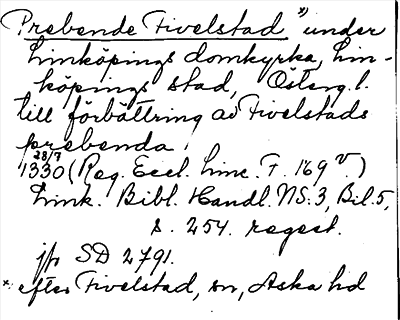 Prebende Fivelstad *) under
Linköpings domkyrka, Lin-
köpings stad, Österg. l.
till förbättring av Fivelstads
prebenda
28/7
1330 (Reg. Eccl. Linc. F. 169 v.)
Link. Bibl. Handl. NS. 3, Bil. 5,
s. 254. regest.
jfr SD 2791.
*. efter Fivelstad, sn, Aska hd